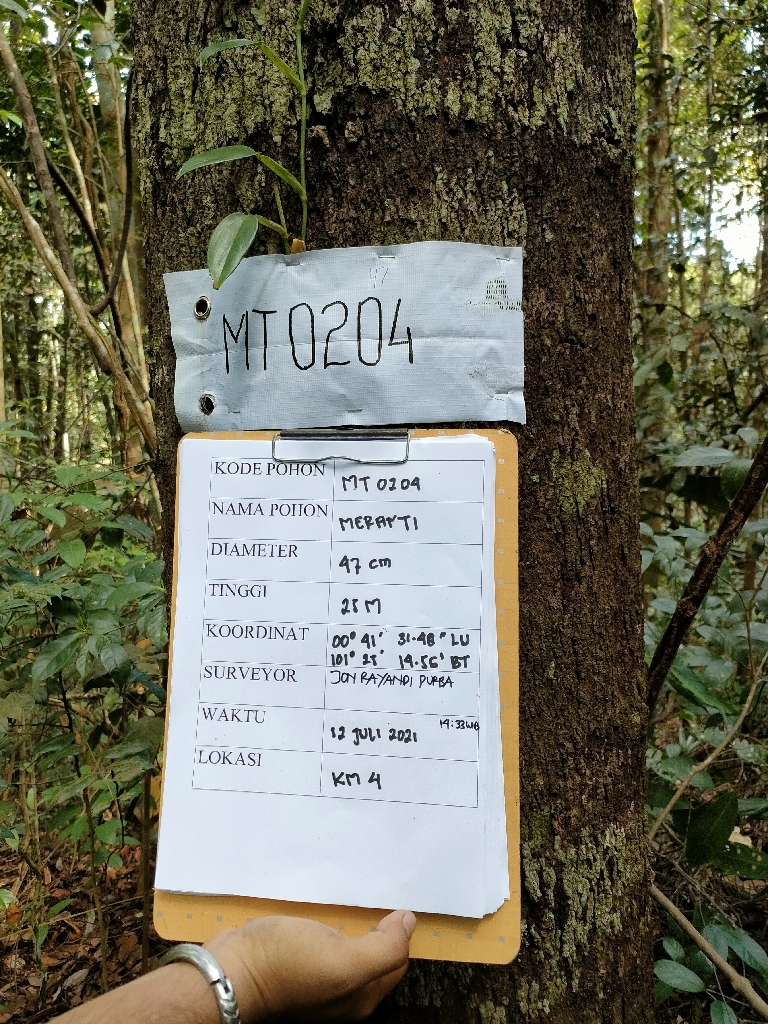 MT0204
KODE POHON MT 0204
NAMA POHON MERANTI
DIAMETER 47 cm
TINGGI 25 M
KOORDINAT 00° 41' 31.48" LU
101° 25' 19.56' BT
SURVEYOR JON RAYANDI PURBA
WAKTU 12 JULI 2021 14:33 WIB
LOKASI KM 4